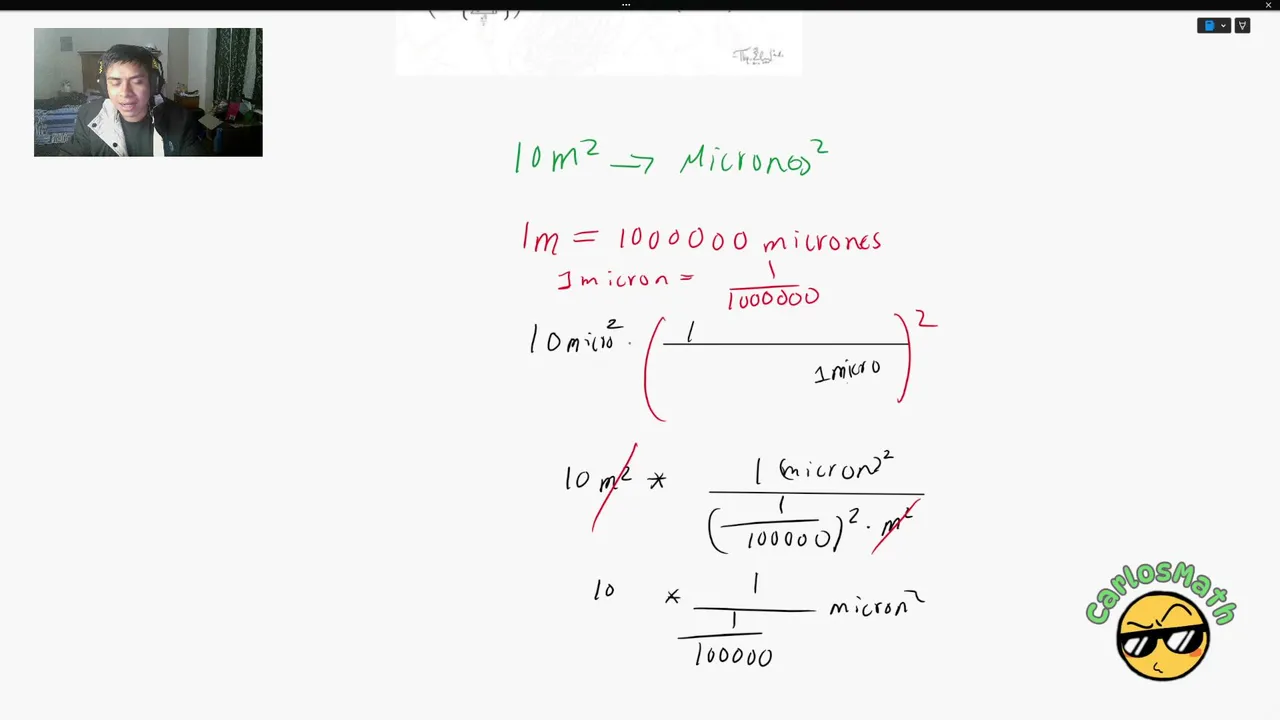 10m² → Micrones²
1m = 1000000 micrones
1 micron = 1
1000000
10micro² · ( 1
1micro )²
10m² * 1 (micron)²
( 1
100000 )² · m²
10 * 1 micron²
1
100000
CarlosMath